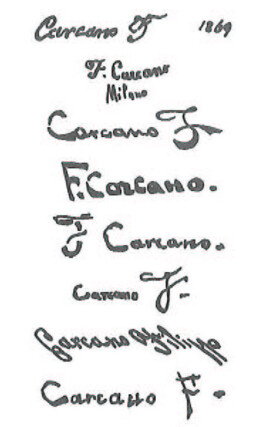 Carcano F 1869
F. Carcano
Milano
Carcano F
F. Carcano.
F Carcano.
Carcano F.
Carcano Filippo
Carcano F.